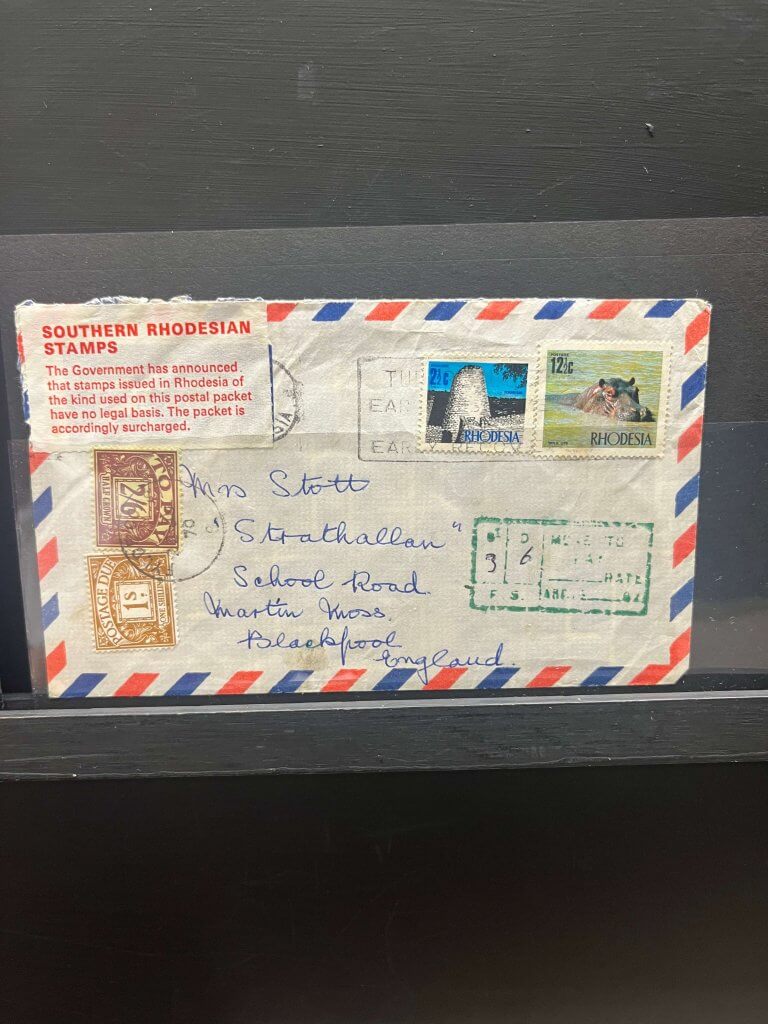 SOUTHERN RHODESIAN
STAMPS
The Government has announced
that stamps issued in Rhodesia of
the kind used on this postal packet
have no legal basis. The packet is
accordingly surcharged.
EAR
EARLY
2½c
RHODESIA
POSTAGE
12½c
RHODESIA
TO PAY
2/6
POSTAGE DUE
1s.
ONE SHILLING
70
Mrs Stott
"Strathallan"
School Road
Martin Moss
Blackpool
England.
D
TO
3 6
RATE
F. S.